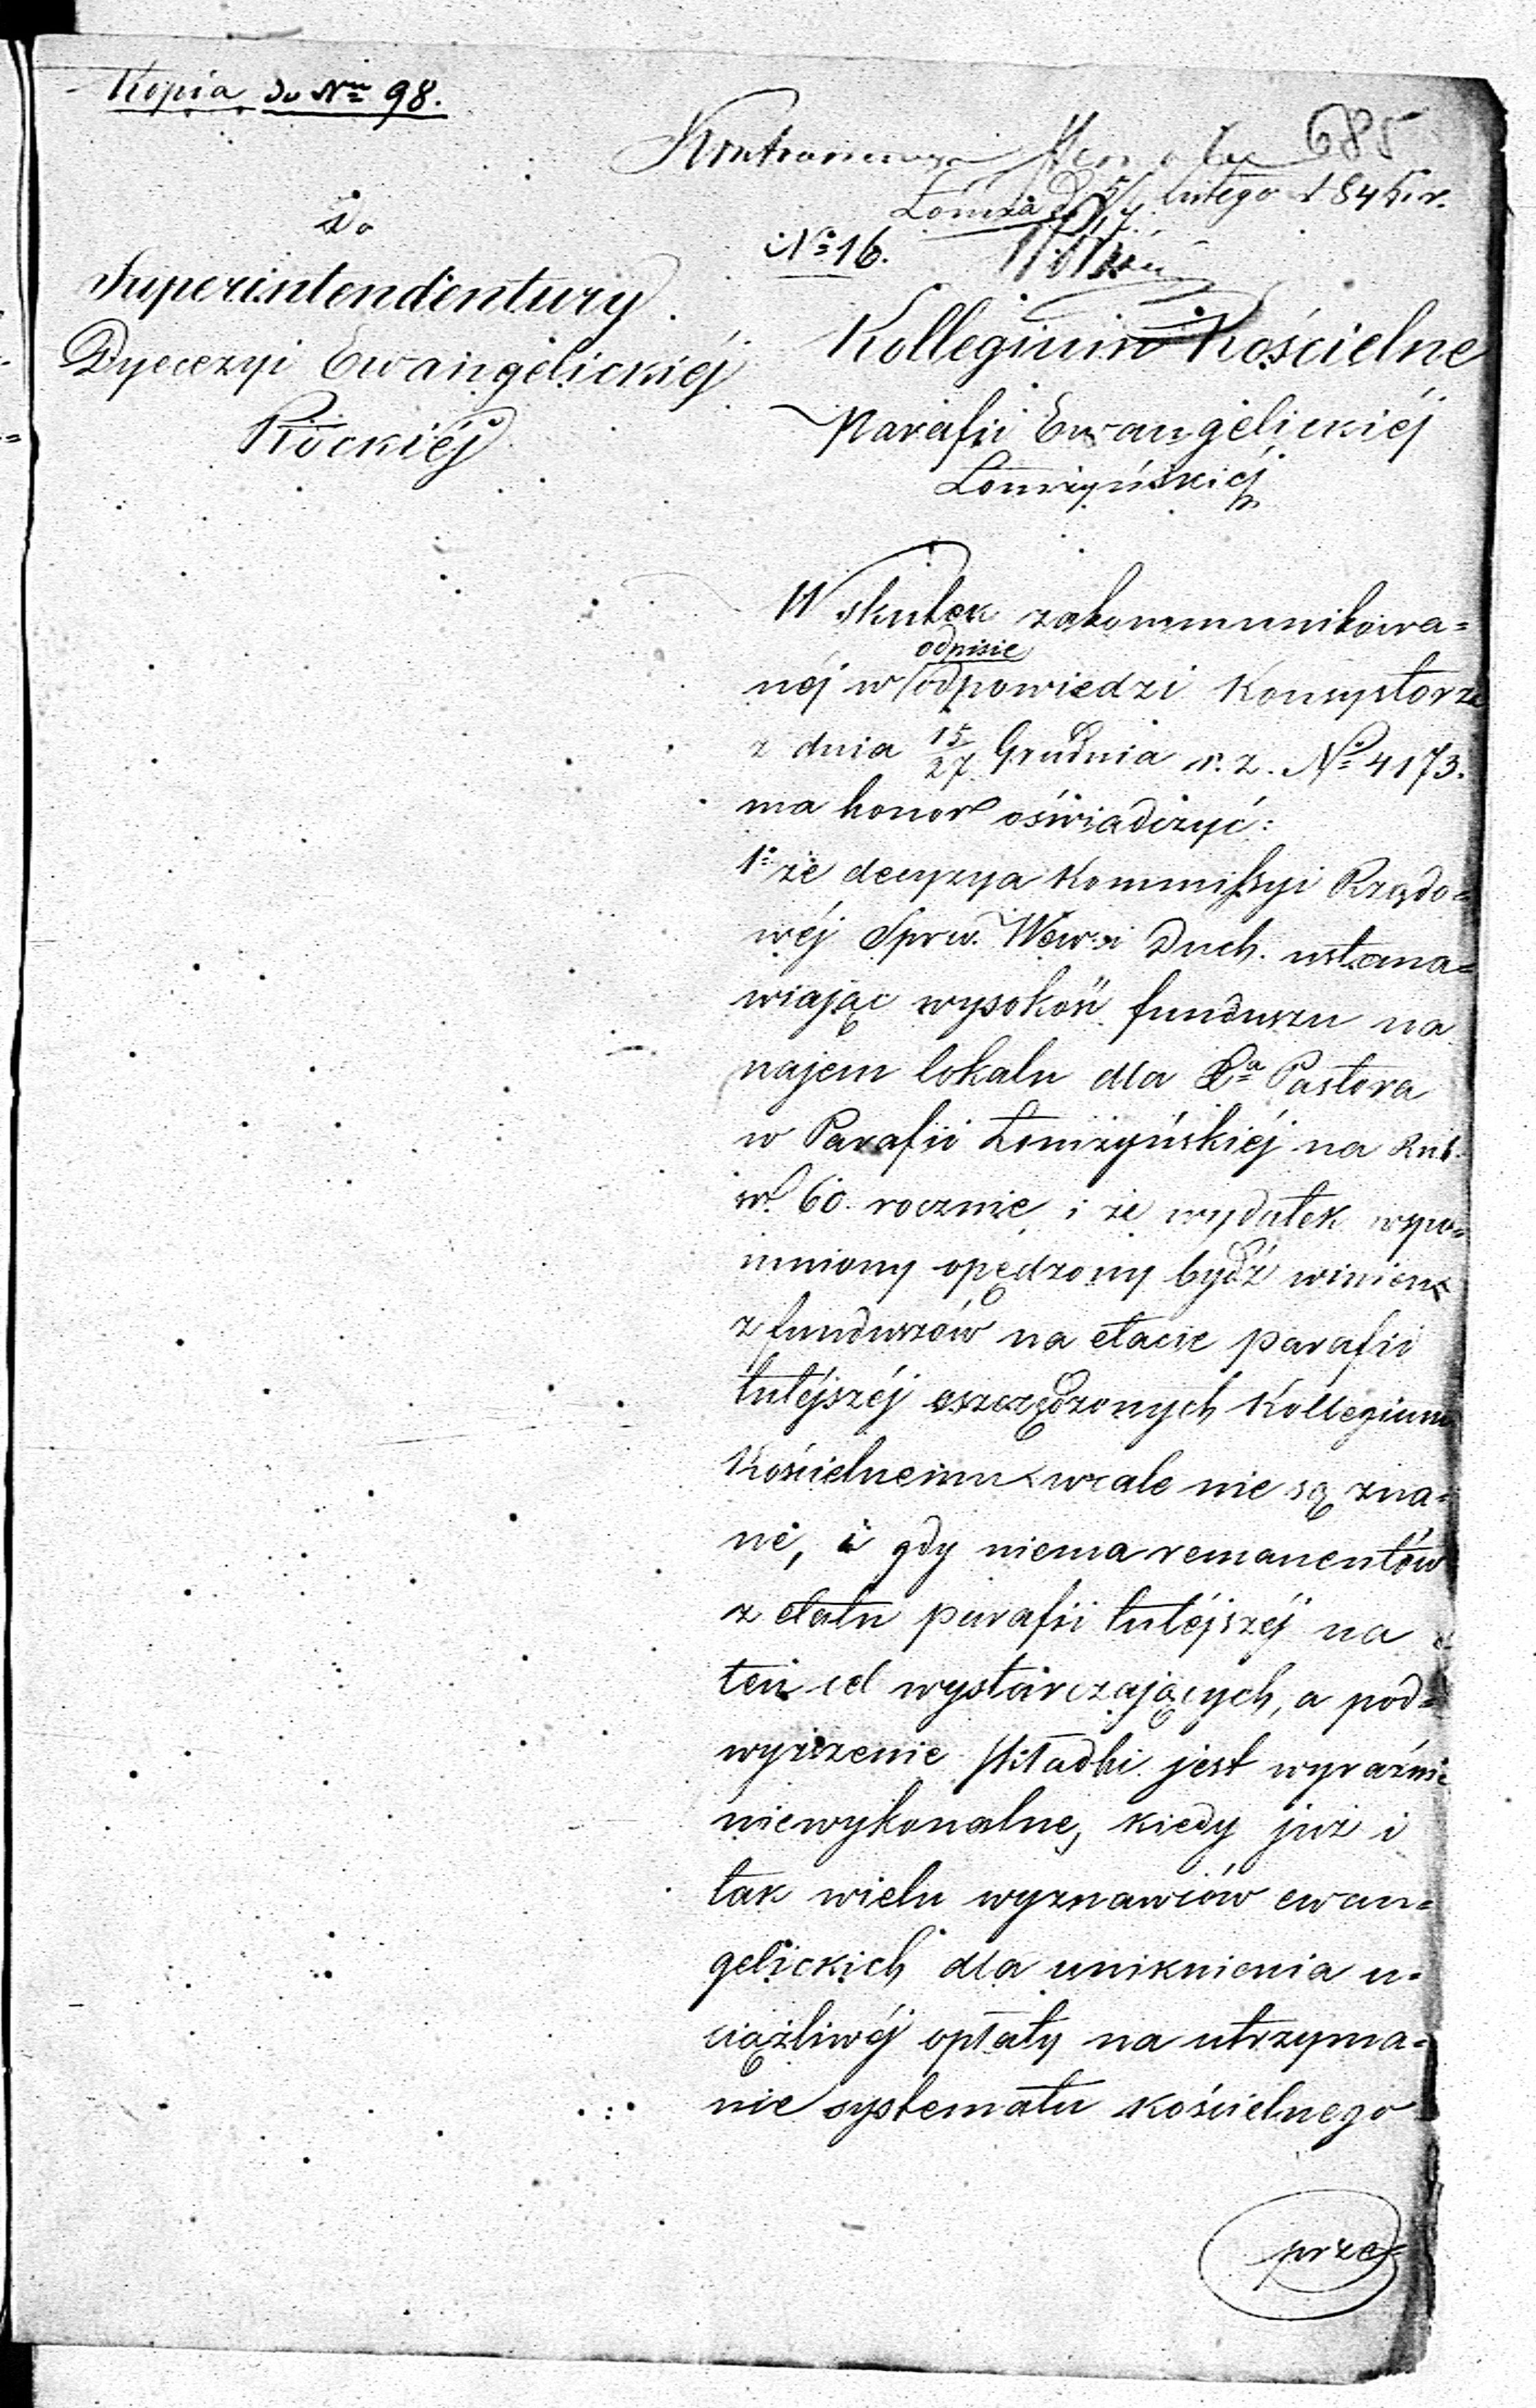 Kopia do Nru 98.
685
Łomża d. 5/17 Lutego 1845 r.
No 16.
Do
Superintendentury
Dyecezyi Ewangelickiéj
Płockiéj
Kollegium Kościelne
Parafii Ewangelickiéj
Łomżyńskiéj
W skutek zakommunikowa=
odpisie
néj w odpowiedzi Konsystorza
z dnia 15/27 Grudnia r. z. No 4173.
ma honor oświadczyć:
1o że decyzya Kommissyi Rządo=
wéj Spraw. Wew. i Duch. ustana=
wiając wysokość funduszu na
najem lokalu dla Pastora
w Parafii Łomżyńskiéj na Rub.
sr. 60. rocznie, i że wydatek wspo=
mniony opędzony bydź winien
z funduszów na etacie parafii
tutéjszéj oszczędzonych Kollegium
Kościelnemu wcale nie są zna=
ne, i gdy niema remanentów
z etatu parafii tutéjszéj na
ten cel wystarczających, a pod=
wyższenie składki jest wyraźnie
niewykonalne, kiedy już i
tak wielu wyznawców ewan=
gelickich dla uniknienia u=
ciążliwéj opłaty na utrzyma=
nie systematu kościelnego
prze